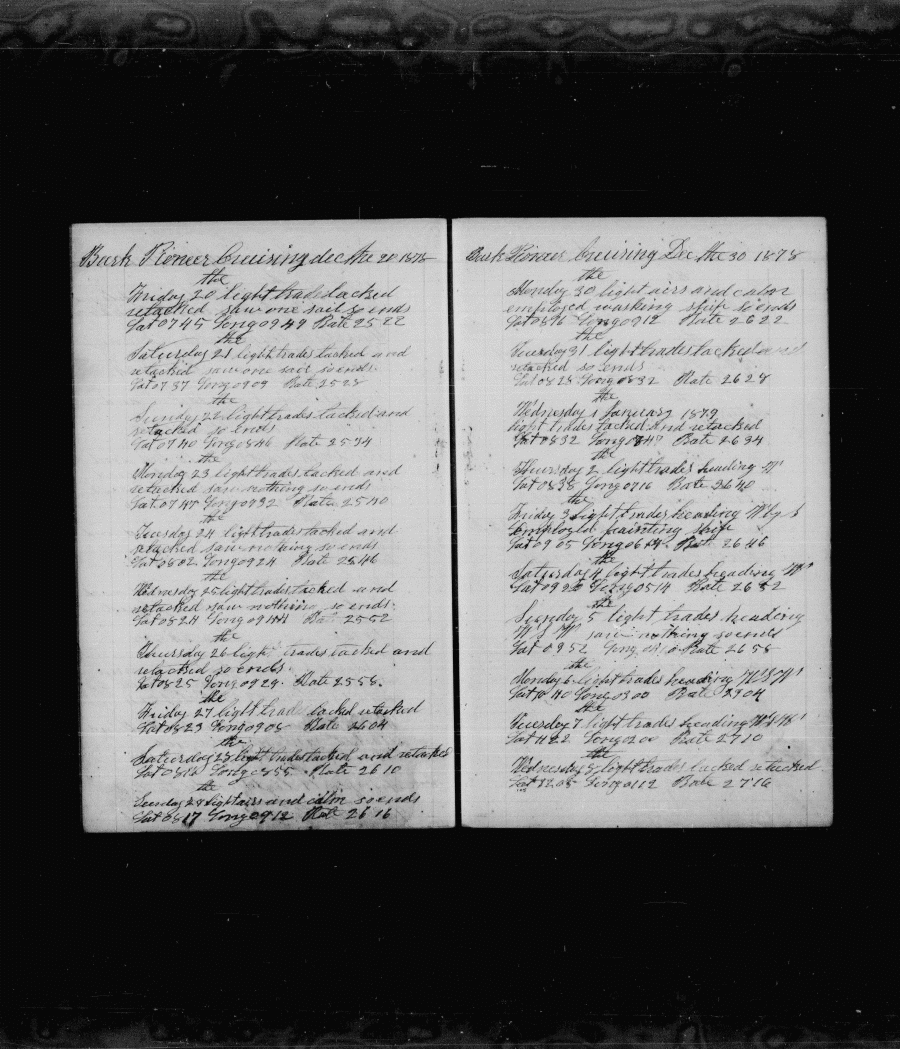 Bark Pioneer Cruising dec the 20 1878
the
Friday 20 light trades tacked
retacked saw one sail so ends
Lat 07 45 Long 09 49 Rate 25 22
the
Saturday 21 light trades tacked and
retacked saw one sail so ends
Lat 07 37 Long 09 09 Rate 25 28
the
Sunday 22 light trades tacked and
retacked so ends
Lat 07 40 Long 08 46 Rate 25 34
the
Monday 23 light trades tacked and
retacked saw nothing so ends
Lat 07 47 Long 07 32 Rate 25 40
the
Tuesday 24 light trades tacked and
retacked saw nothing so ends
Lat 08 02 Long 09 24 Rate 25 46
the
Wednesday 25 light trades tacked and
retacked saw nothing so ends
Lat 08 24 Long 09 44 Rate 25 52
the
Thursday 26 light trades tacked and
retacked so ends
Lat 08 25 Long 09 29 Rate 25 58
the
Friday 27 light trade tacked retacked
Lat 08 23 Long 09 05 Rate 26 04
the
Saturday 28 light trades tacked and retacked
Lat 08 10 Long 08 55 Rate 26 10
the
Sunday 29 light airs and calm so ends
Lat 08 17 Long 09 12 Rate 26 16
Bark Pioneer Cruising Dec the 30 1878
the
Monday 30 light airs and calm
employed washing ship so ends
Lat 08 16 Long 09 12 Rate 26 22
the
Tuesday 31 light trades tacked and
retacked so ends
Lat 08 28 Long 08 32 Rate 26 28
the
Wednesday 1 January 1879
light trades tacked and retacked
Lat 08 32 Long 08 47 Rate 26 34
the
Thursday 2 light trades heading W
Lat 08 38 Long 07 16 Rate 26 40
the
Friday 3 light trades heading W by S
Employed painting ship
Lat 09 05 Long 06 14 Rate 26 46
the
Saturday 4 light trades heading W
Lat 09 25 Long 05 14 Rate 26 52
the
Sunday 5 light trades heading
W S W saw nothing so ends
Lat 09 52 Long Rate 26 58
the
Monday 6 light trades heading WSW
Lat 10 40 Long 03 00 Rate 27 04
the
Tuesday 7 light trades heading WSW
Lat 11 22 Long 02 00 Rate 27 10
the
Wednesday 8 light trades tacked retacked
Lat 12 05 Long 01 12 Rate 27 16